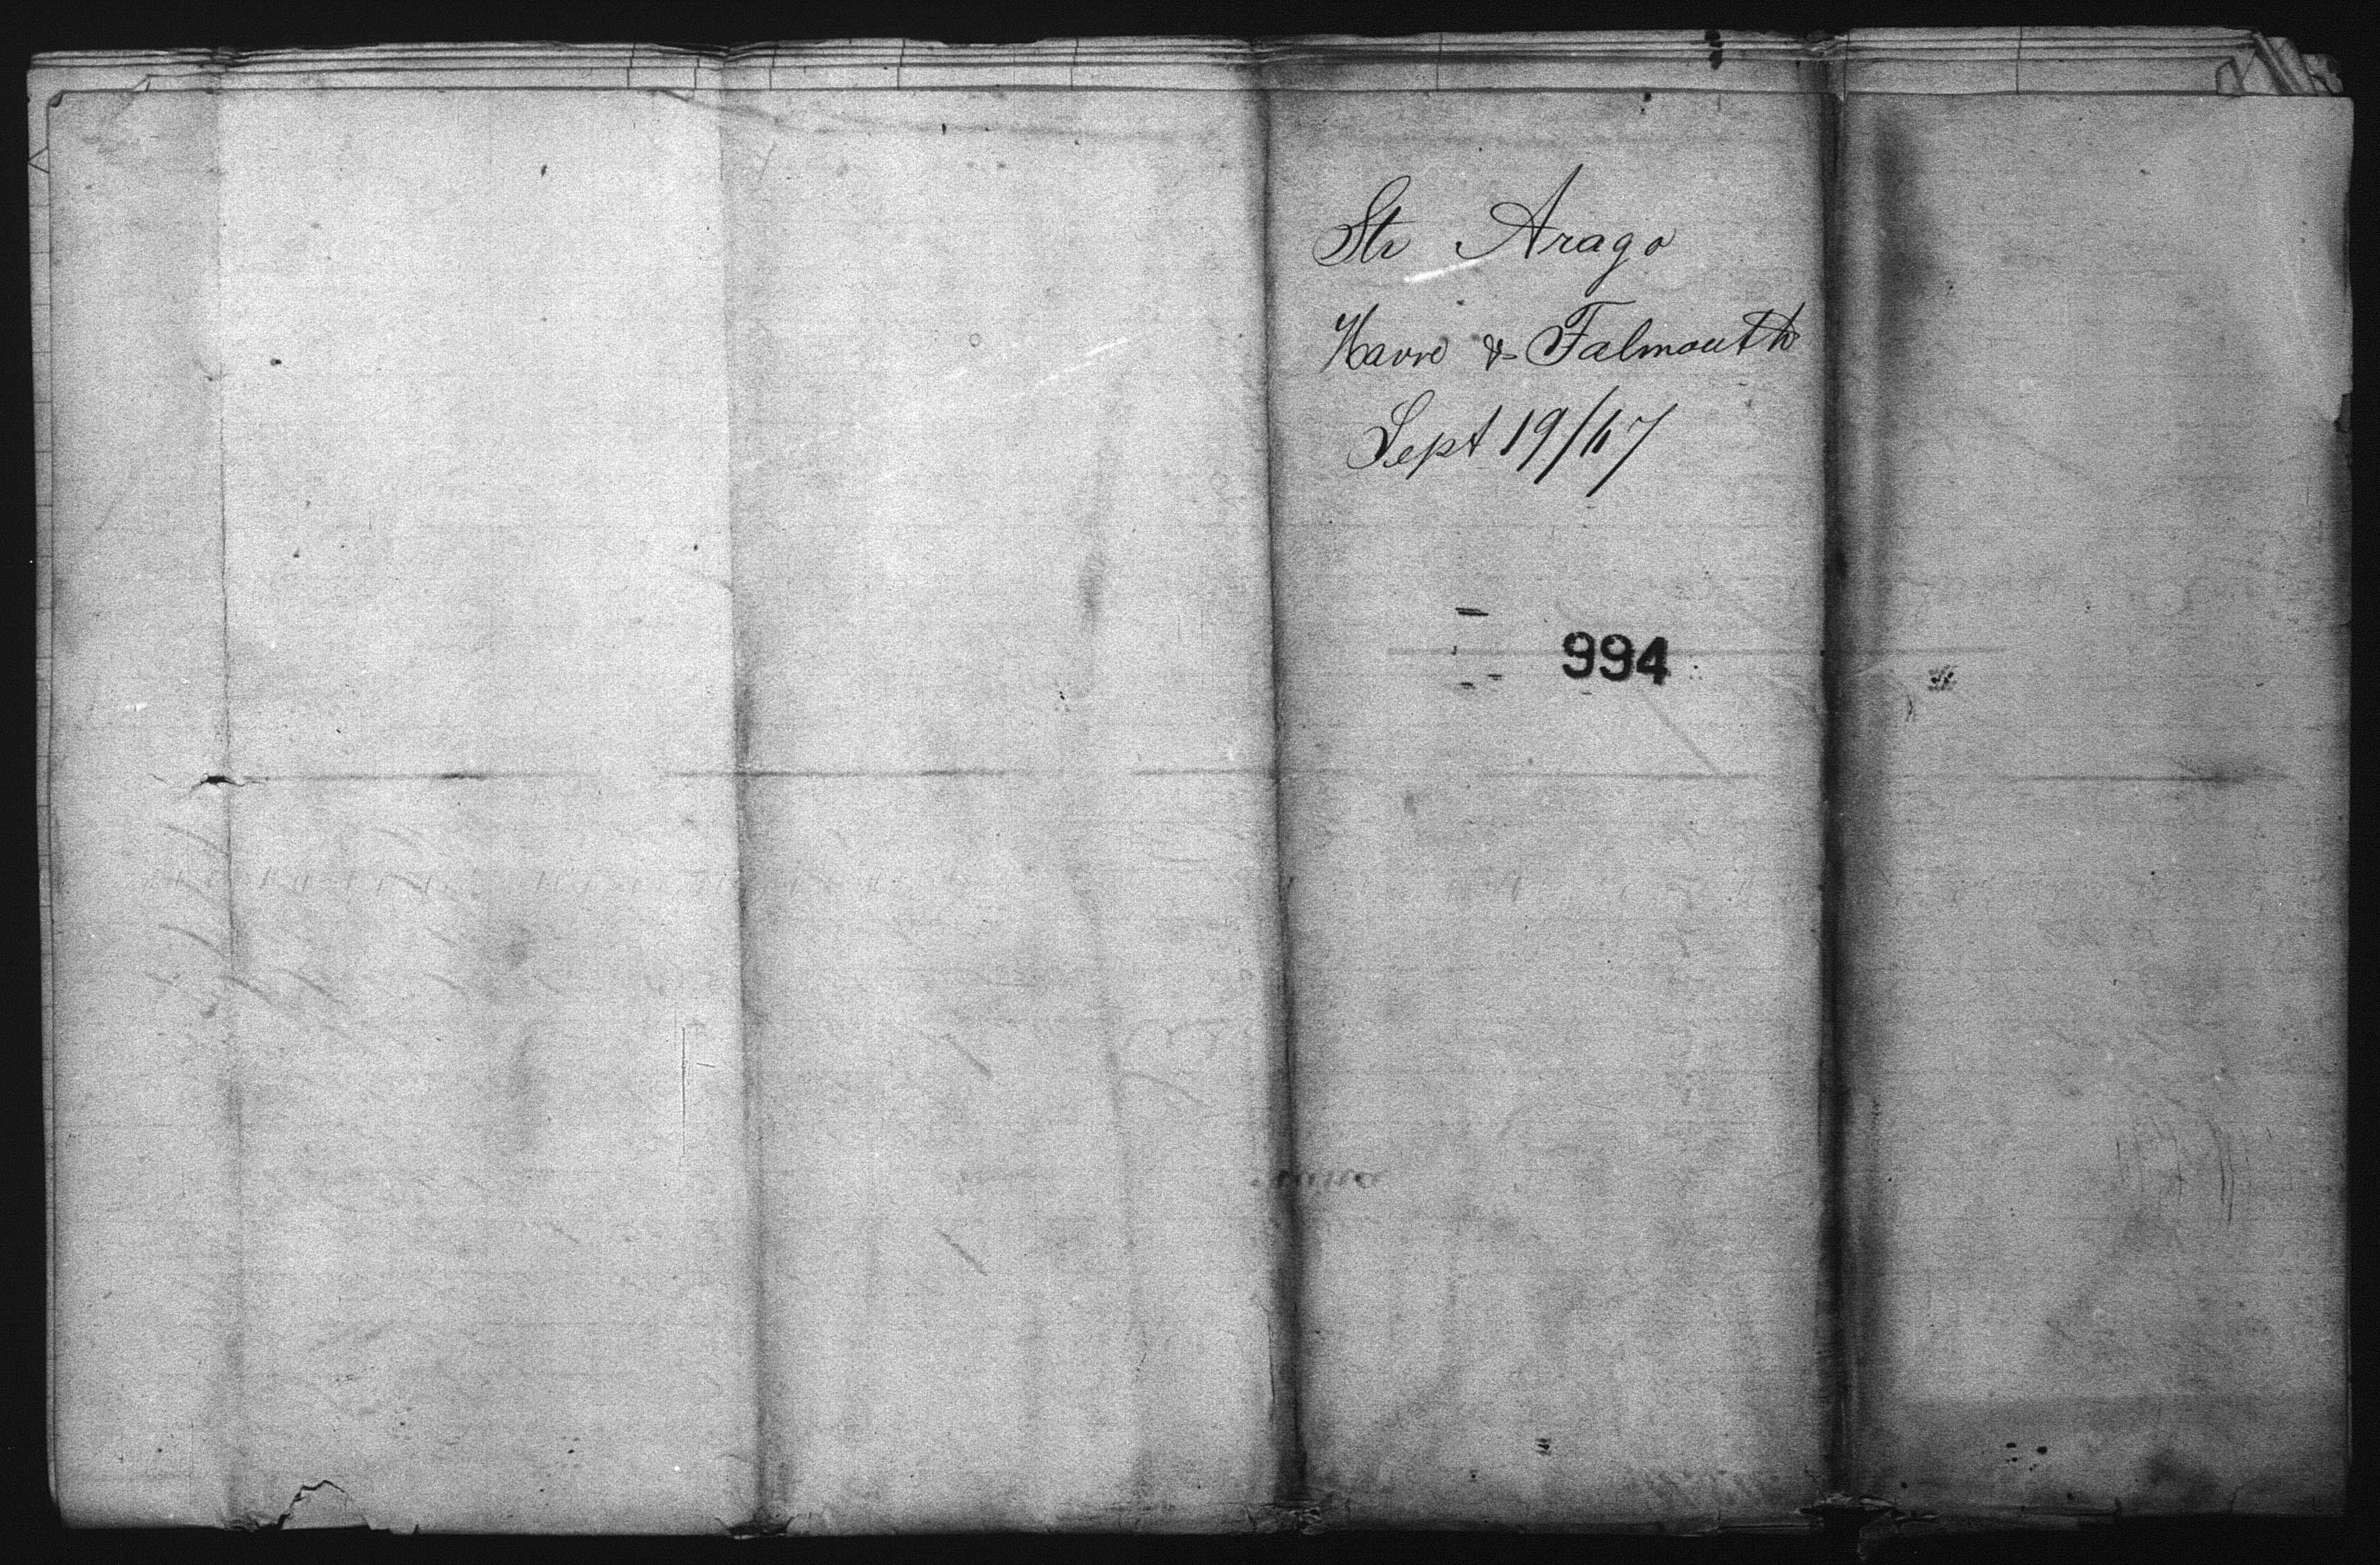 Str Arago
Havre & Falmouth
Sept 19/67
994